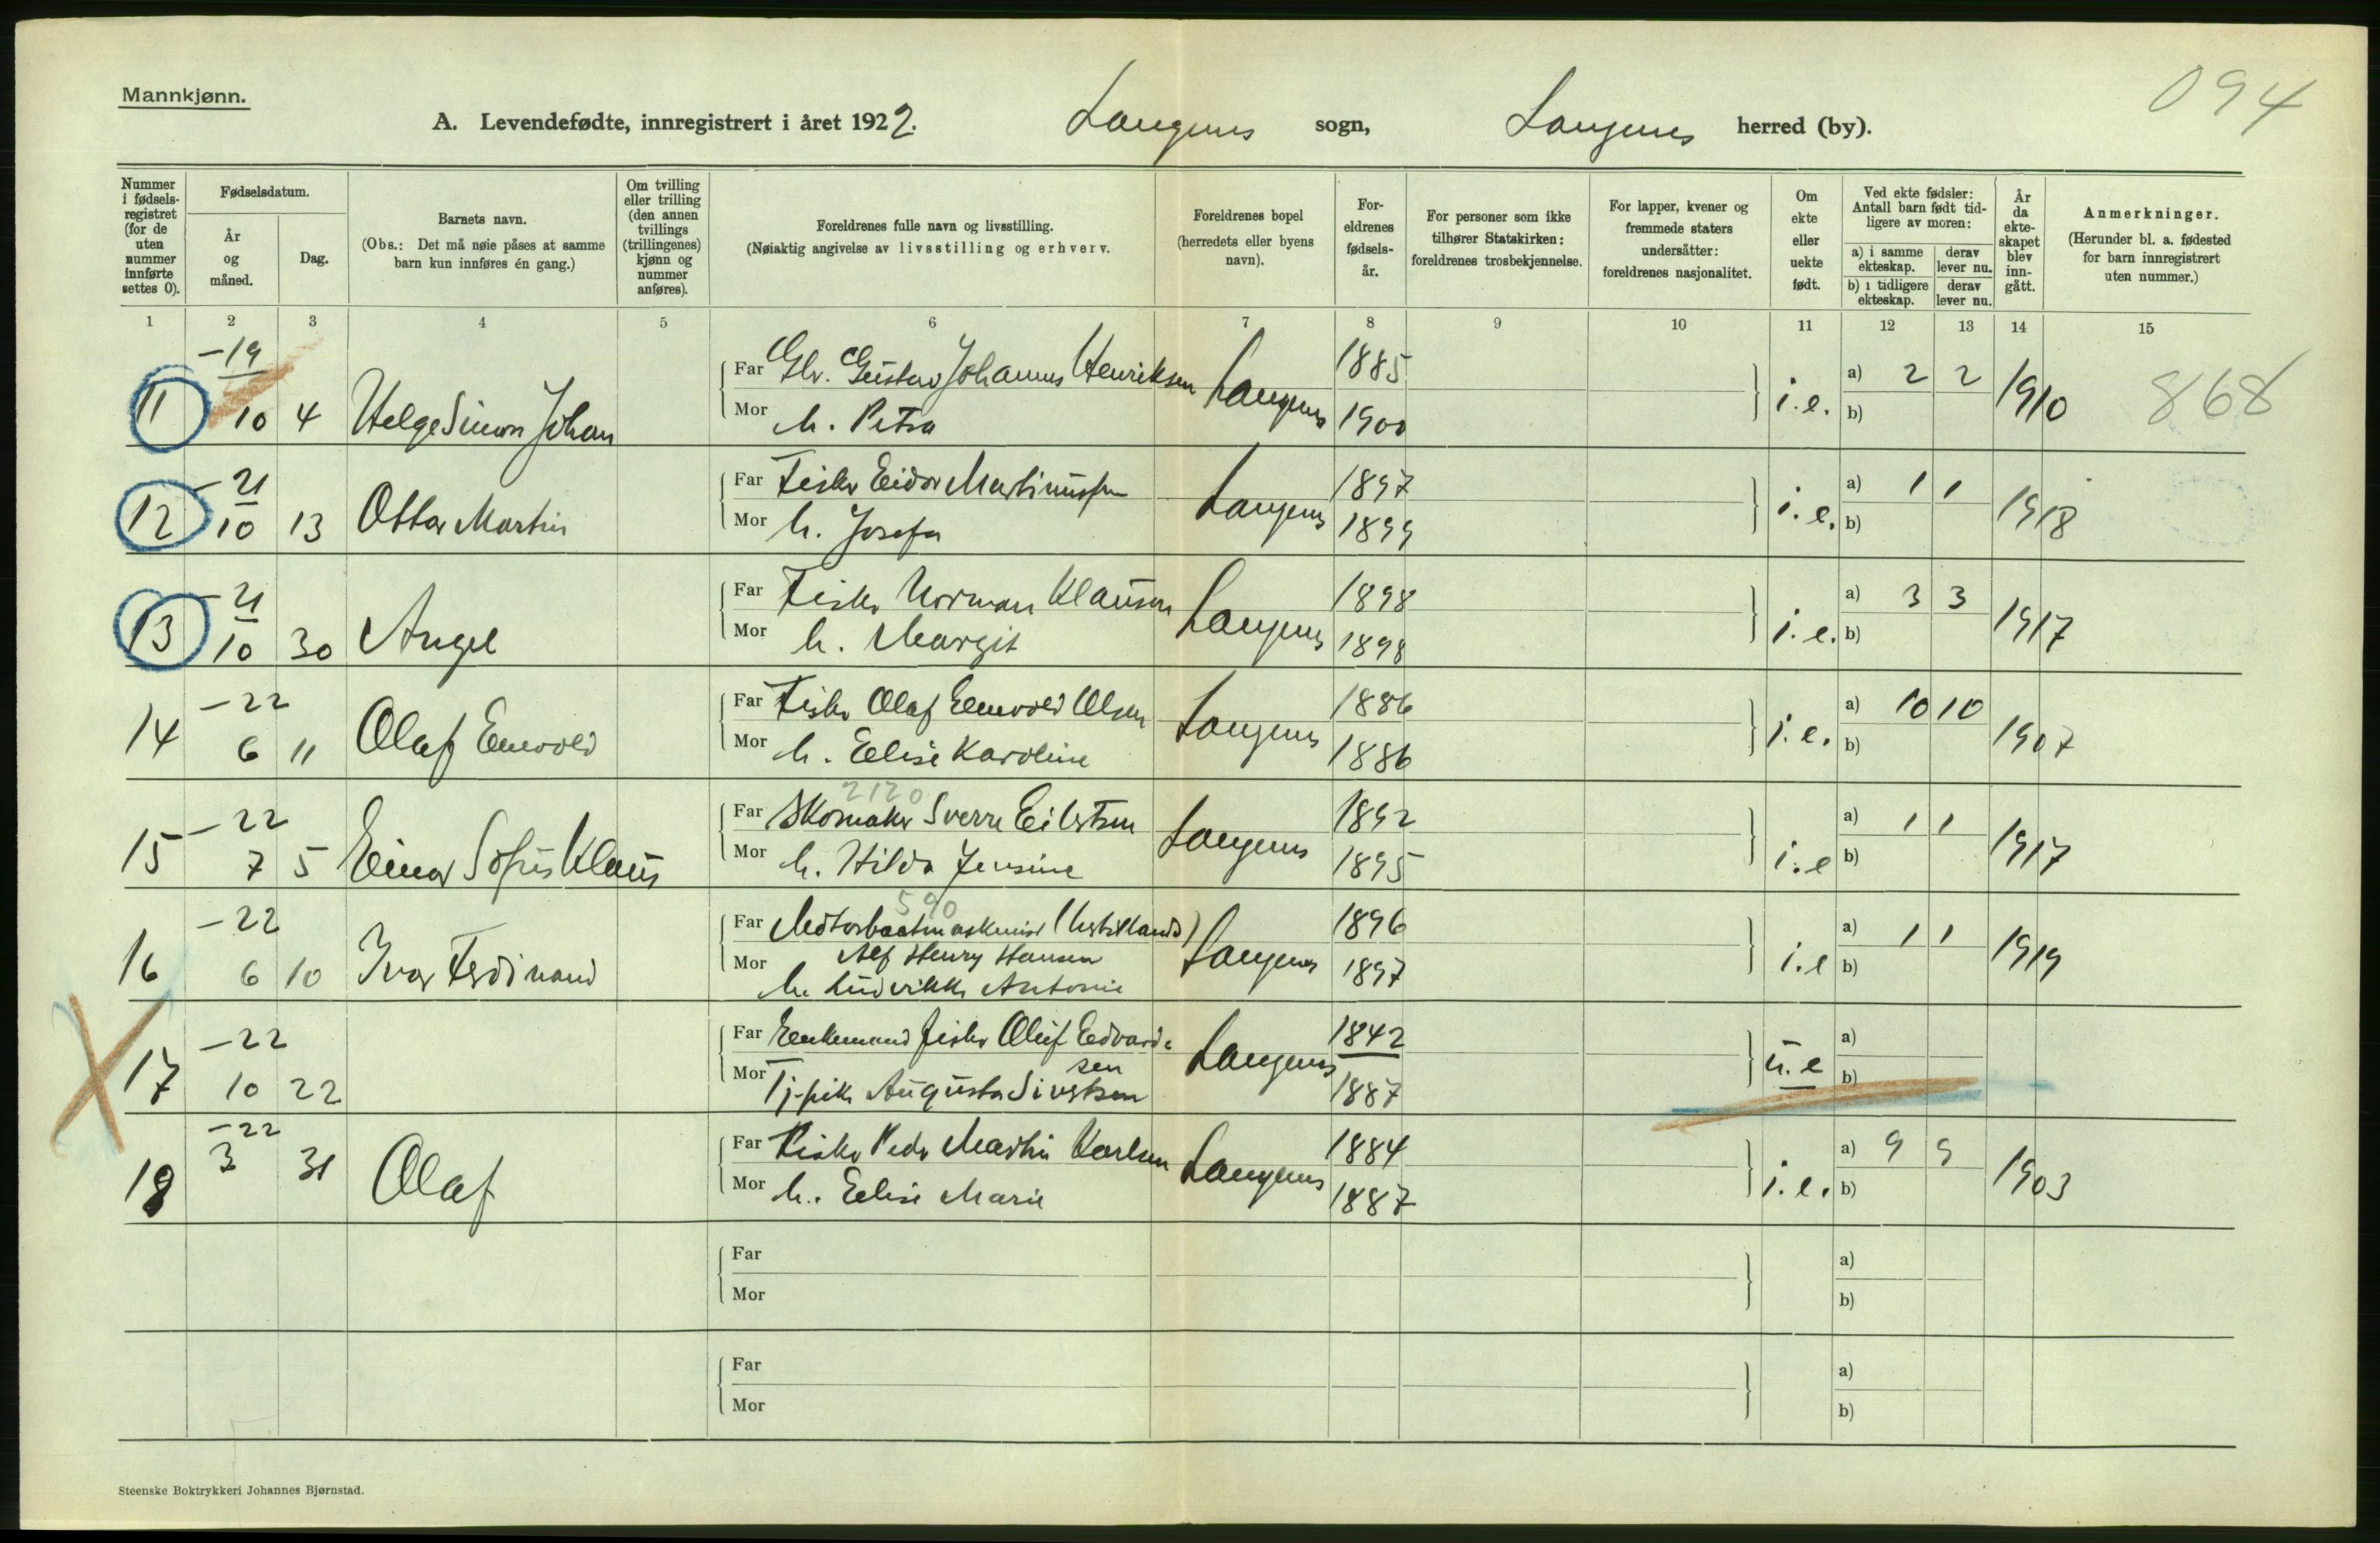 Mannkjønn.
094
A. Levendefødte, innregistrert i året 1922. Langenes sogn, Langenes herred (by).
Nummer i fødsels-registret (for de uten nummer innførte settes 0).
Fødselsdatum.
År og måned.
Dag.
Barnets navn.
(Obs.: Det må nøie påses at samme barn kun innføres én gang.)
Om tvilling eller trilling (den annen tvillings (trillingenes) kjønn og nummer anføres).
Foreldrenes fulle navn og livsstilling.
(Nøiaktig angivelse av livsstilling og erhverv.
Foreldrenes bopel (herredets eller byens navn).
For-eldrenes fødsels-år.
For personer som ikke tilhører Statskirken: foreldrenes trosbekjennelse.
For lapper, kvener og fremmede staters undersåtter: foreldrenes nasjonalitet.
Om ekte eller uekte født.
Ved ekte fødsler: Antall barn født tid-ligere av moren:
a) i samme ekteskap. derav lever nu.
b) i tidligere ekteskap. derav lever nu.
År da ekte-skapet blev inn-gått.
Anmerkninger.
(Herunder bl. a. fødested for barn innregistrert uten nummer.)
1 2 3 4 5 6 7 8 9 10 11 12 13 14 15
-19 Far Gbr. Gustav Johannes Henriksen 1885 a) 2 2
11 10 4 Helge Simon Johan Mor h. Petra Langenes 1900 i.e. b) 1910 868
-21 Far Fisker Eidor Martinussen 1897 a) 1 1
12 10 13 Ottar Martin Mor h. Josefa Langenes 1899 i.e. b) 1918
-21 Far Fisker Norman Klausen 1898 a) 3 3
13 10 30 Angel Mor h. Margit Langenes 1898 i.e. b) 1917
-22 Far Fisker Olaf Edvard Olsen 1886 a) 10 10
14 6 11 Olaf Mor h. Elise Karoline Langenes 1886 i.e. b) 1907
2120
-22 Far Skomaker Sverre Eilertsen 1892 a) 1 1
15 7 5 Einar Sofus Klaus Mor h. Hilda Jensine Langenes 1895 i.e b) 1917
590
-22 Far Motorbaatmaskinist 1896 a) 1 1
Alf Henry Hansen
16 6 10 Ivar Ferdinand Mor h. Ludvikke Antonie Langenes 1897 i.e b) 1919
-22 Far Enkemand fisker Oluf Edvard- 1842 a)
sen
17 10 22 Mor Tj.pike Augusta Sivertsen Langenes 1887 u.e b)
-22 Far Fisker Peder Martin Karlsen 1884 a) 9 9
18 3 31 Olaf Mor h. Elise Marie Langenes 1887 i.e. b) 1903
Far a)
Mor b)
Far a)
Mor b)
Steenske Boktrykkeri Johannes Bjørnstad.